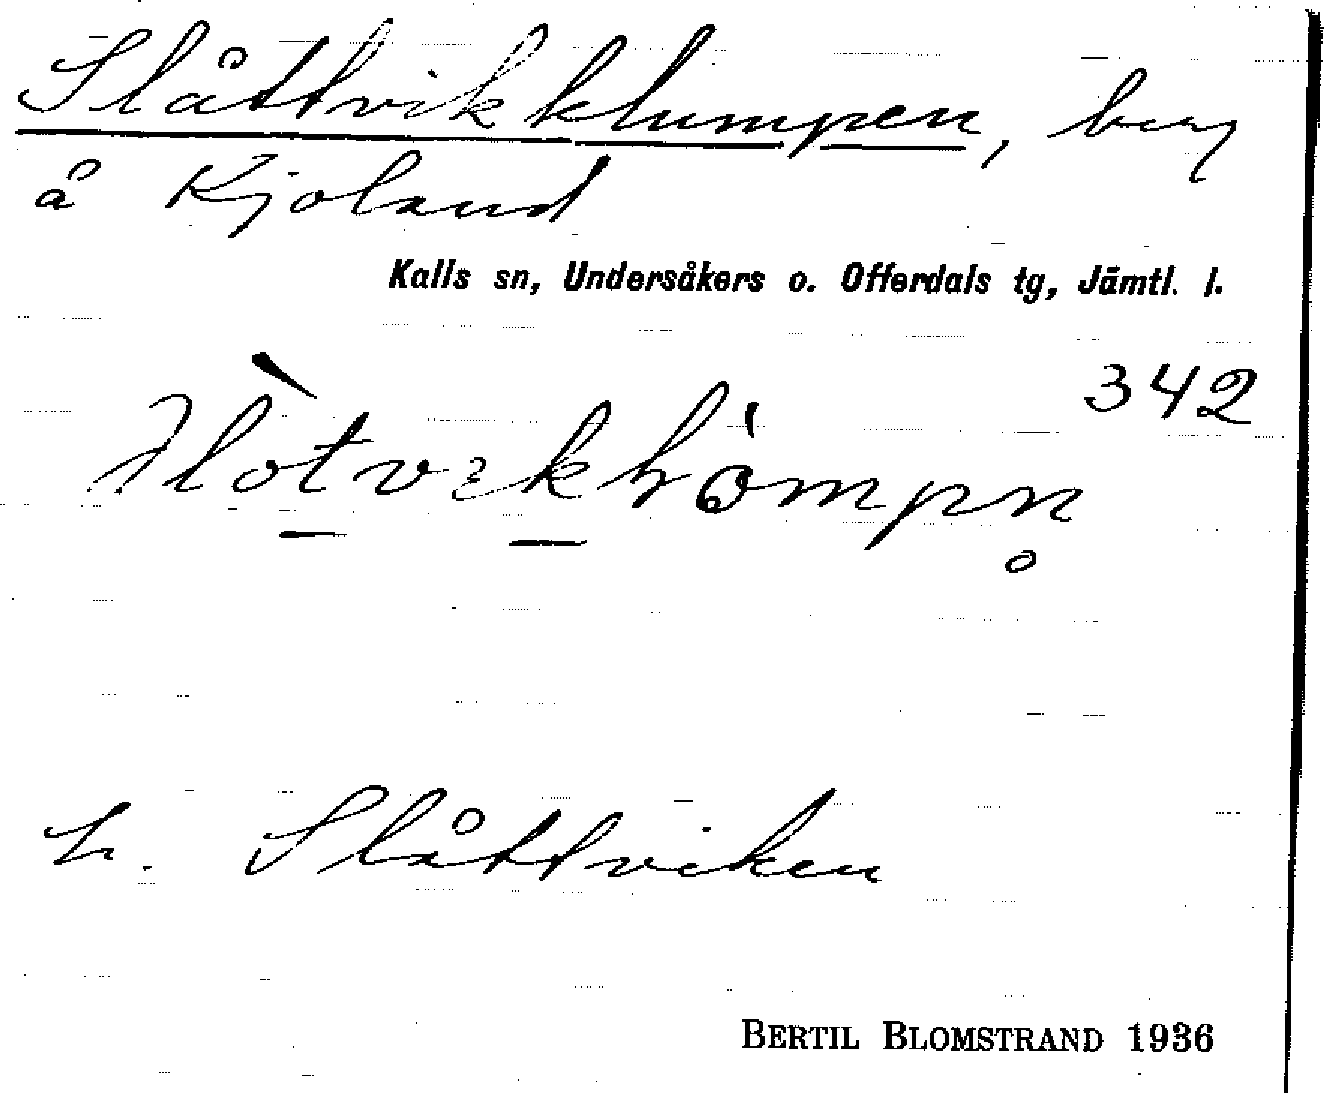 Slåttvikklumpen, berg
å Kjoland
Kalls sn, Undersåkers o. Offerdals tg, Jämtl. l.
342
L. Slåttviken
BERTIL BLOMSTRAND 1936